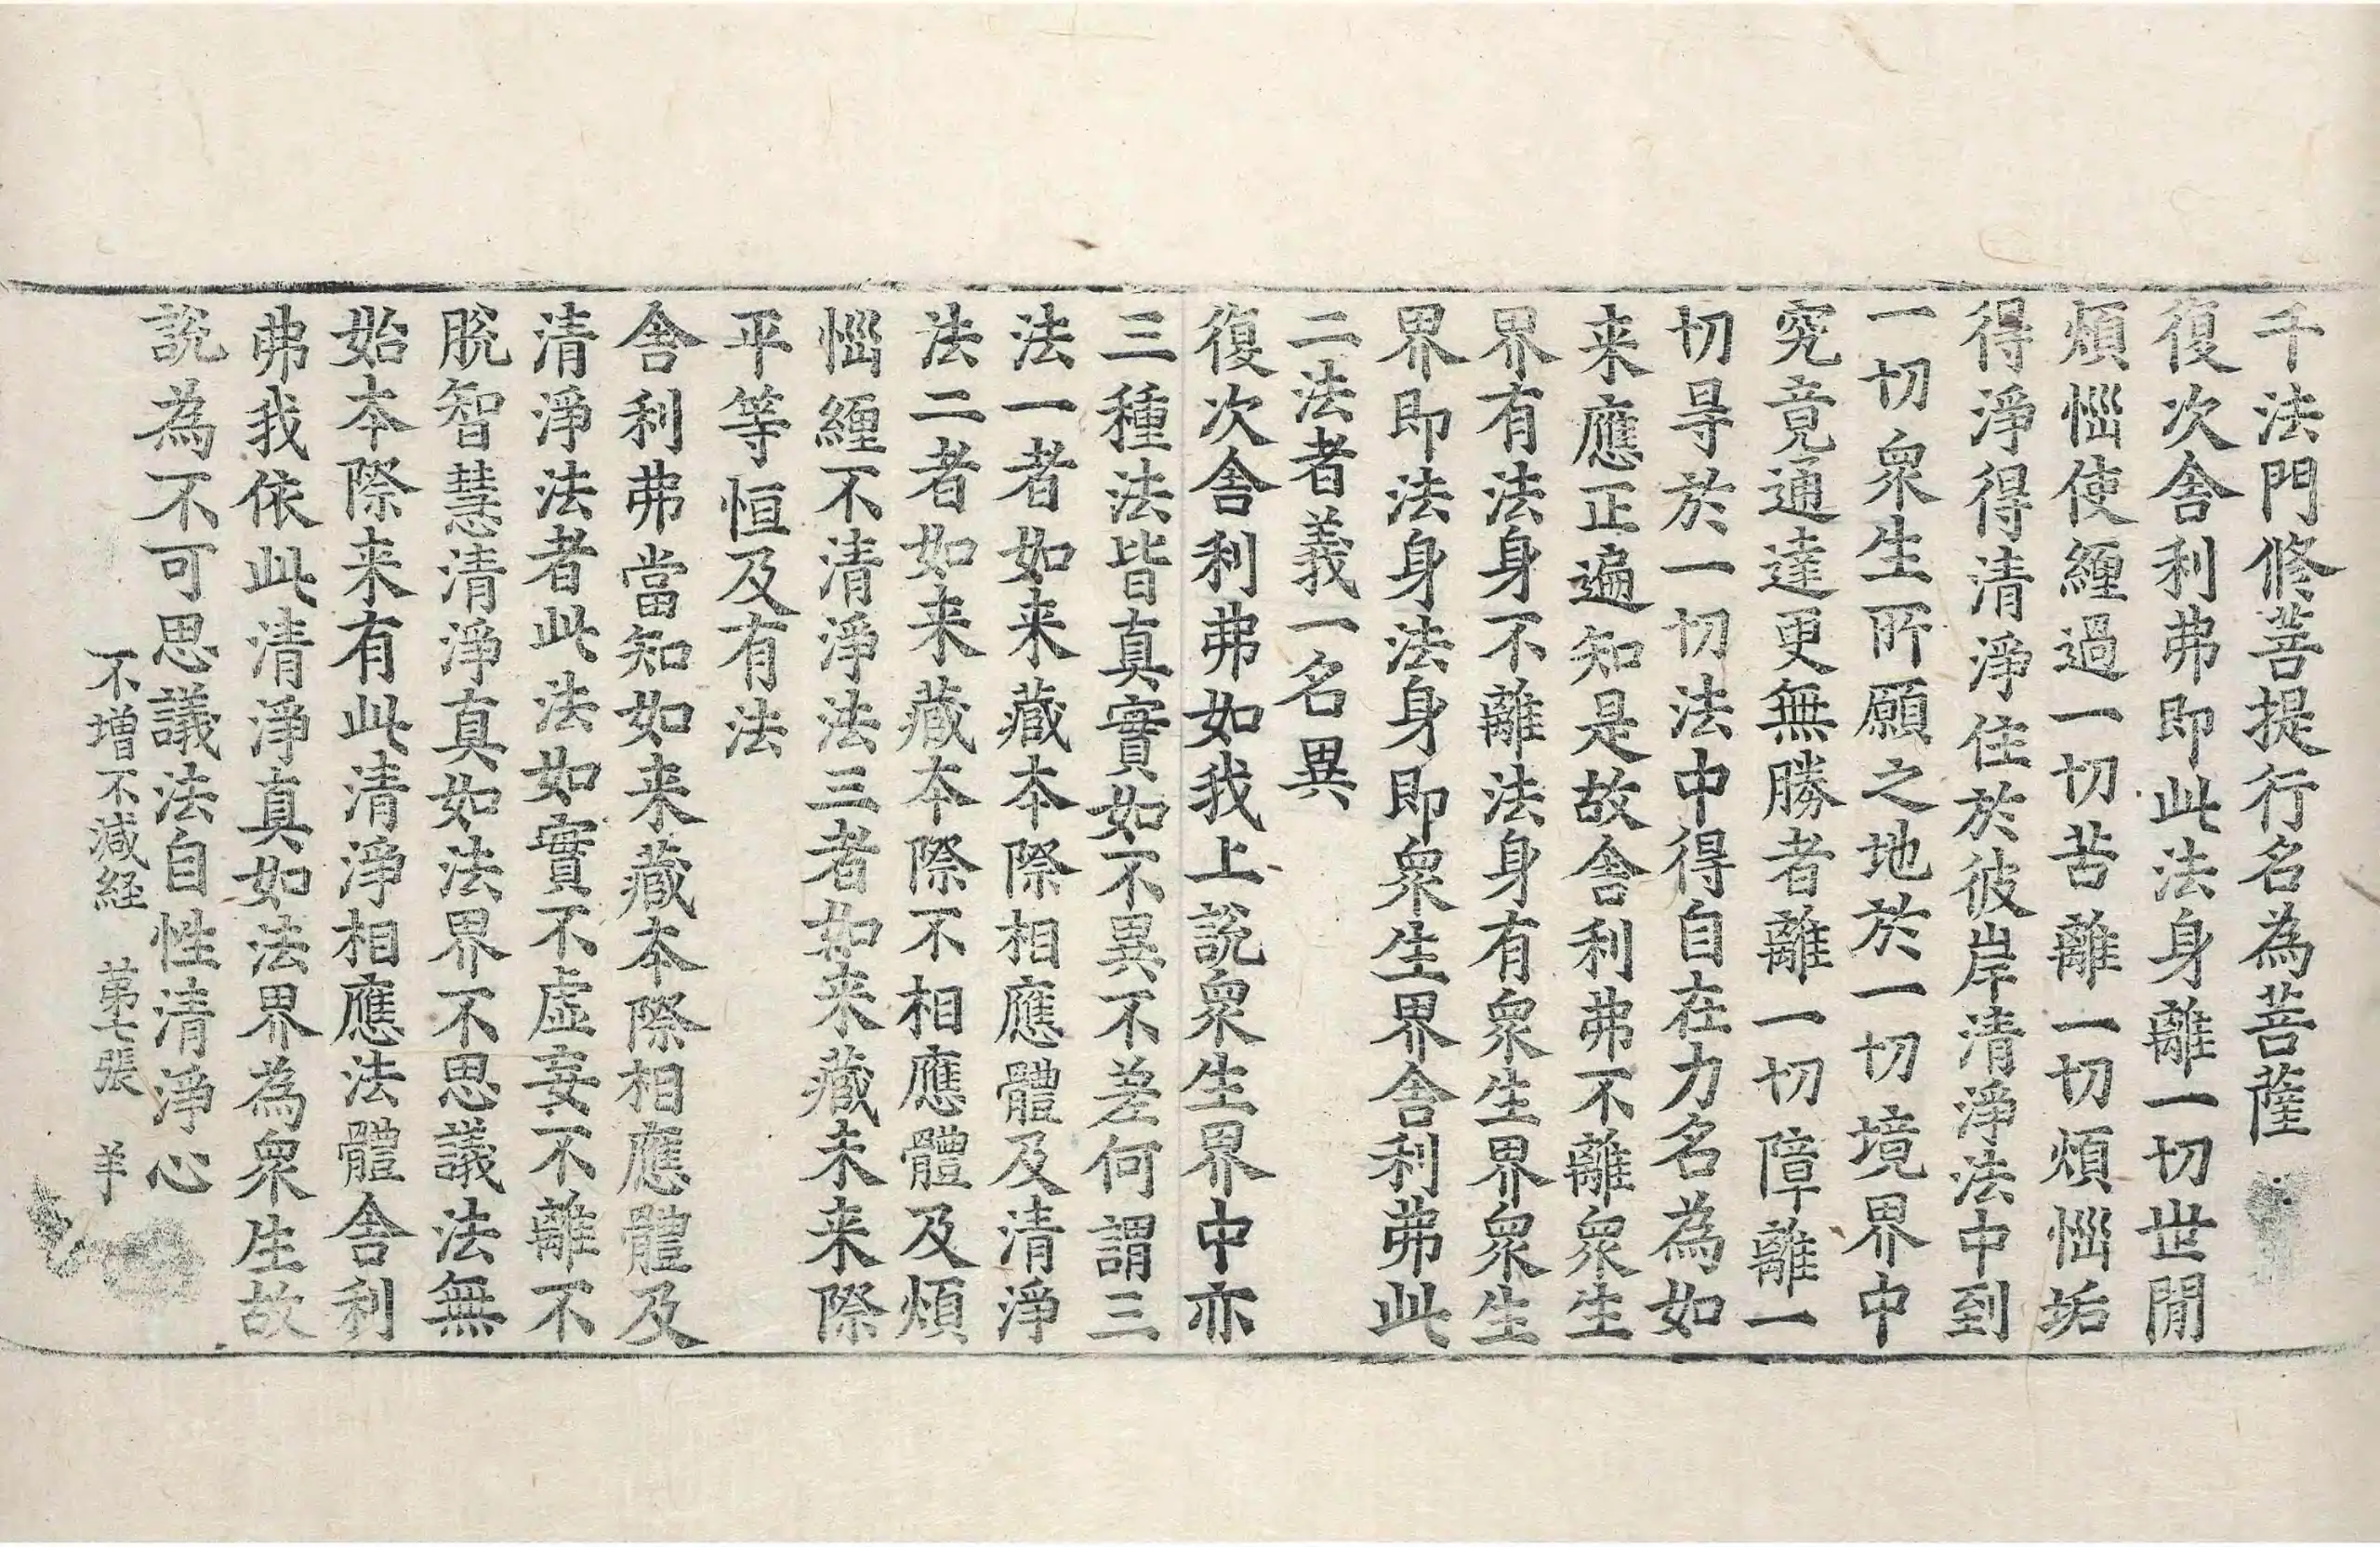 千法門修菩提行名為菩薩
復次舎利弗即此法身離一切世閒
煩惱使纒過一切苦離一切煩惱垢
得淨得清淨住於彼岸清淨法中到
一切衆生所願之地於一切境界中
究竟通達更無勝者離一切障離一
切㝵於一切法中得自在力名為如
来應正遍知是故舎利弗不離衆生
界有法身不離法身有衆生界衆生
界即法身法身即衆生界舎利弗此
二法者義一名異
復次舎利弗如我上說衆生界中亦
三種法皆真實如不異不差何謂三
法一者如来藏本際相應體及清淨
法二者如来藏本際不相應體及煩
惱纒不清淨法三者如来藏未来際
平等恒及有法
舎利弗當知如来藏本際相應體及
清淨法者此法如實不虛妄不離不
脫智慧清淨真如法界不思議法無
始本際来有此清淨相應法體舎利
弗我依此清淨真如法界為衆生故
說為不可思議法自性清淨心
不增不減経 苐七張 羊